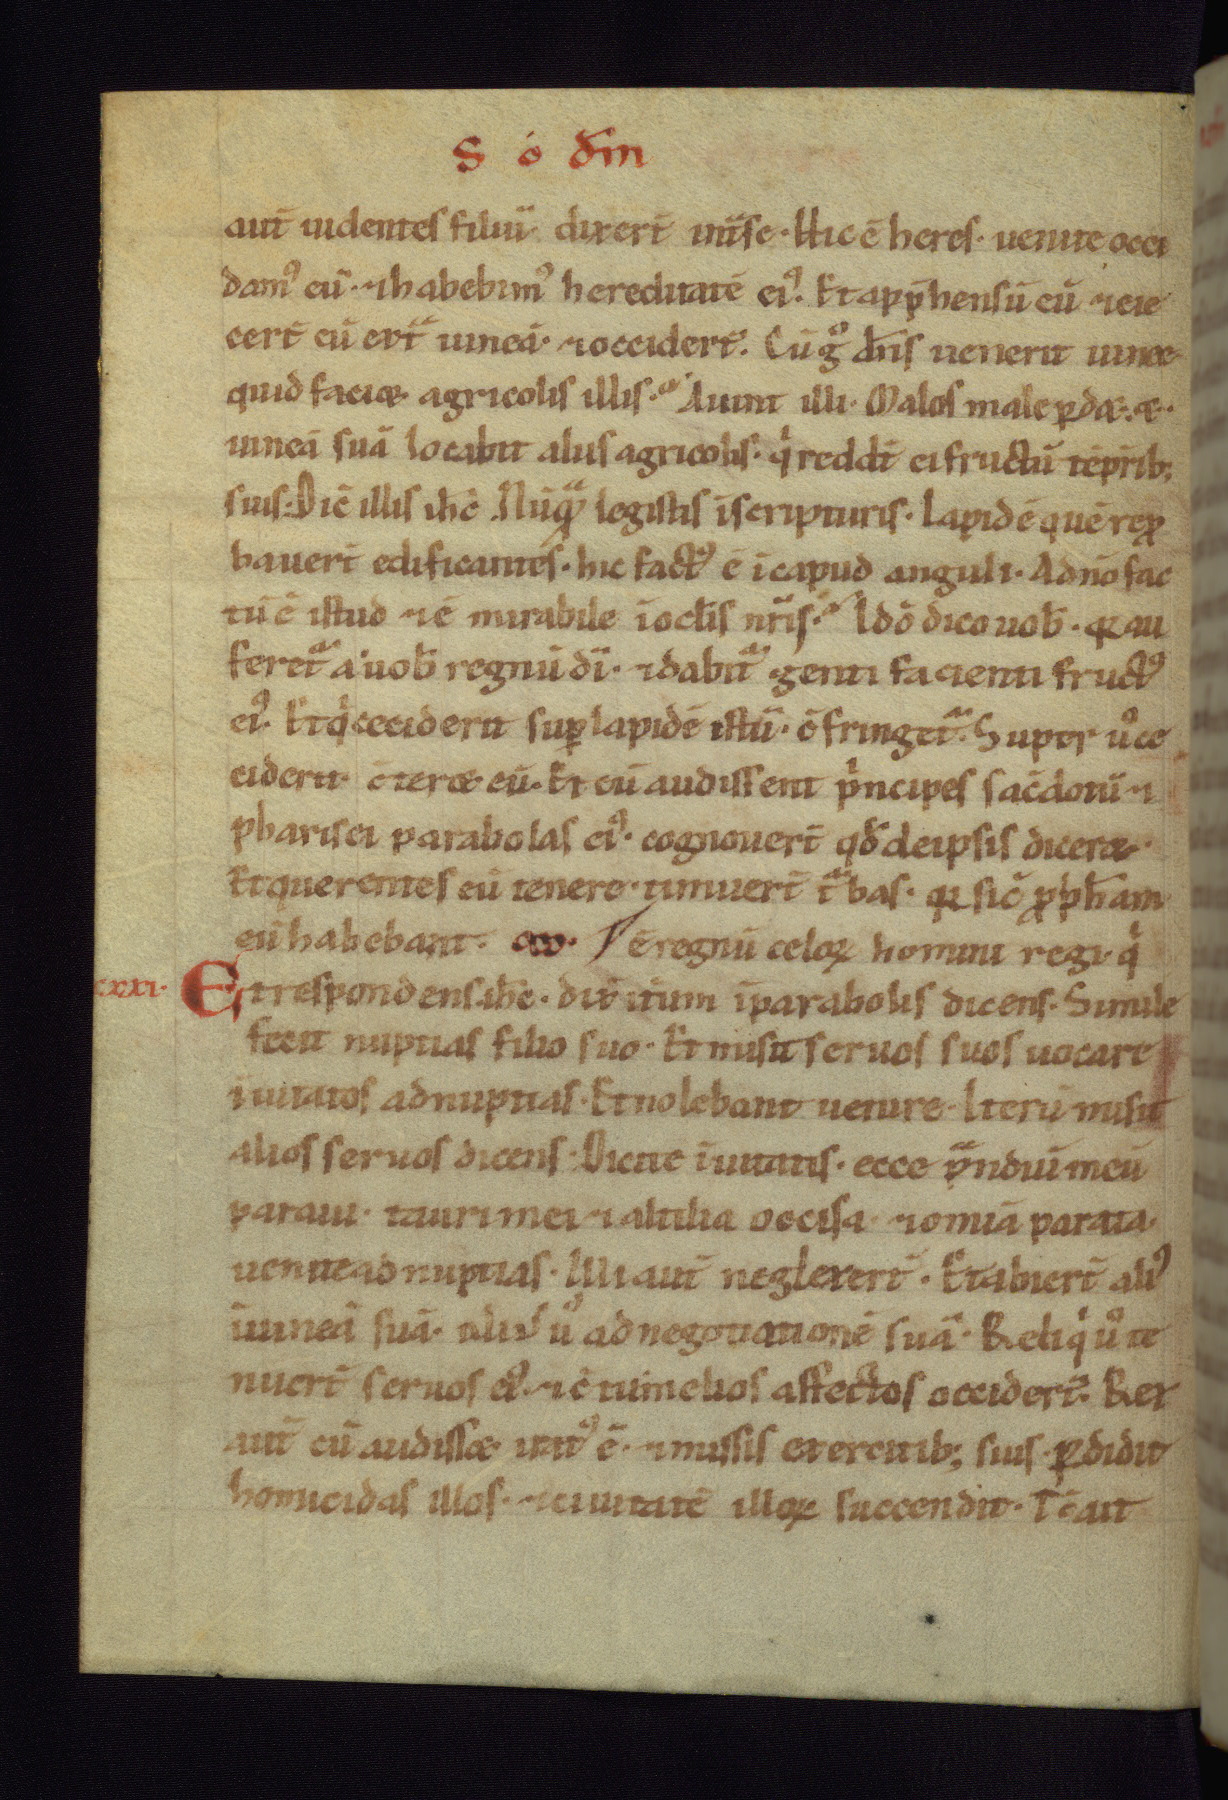 S c̄ đm
aut̄ uidentes filiū dixerͭ intͣ se · Hic ē heres · uenite occi
damꝰ eū · ⁊ habebimꝰ hereditatē eiꝰ. Et app̄hensū eū ⁊ eie
cert̄ eū extͣ uineā · ⁊ occidert̄. Cū g° dn̄s uenerit uinee
quid faciæ agricolis illis. Aiunt illi · Malos male ꝑdæ · &
uineā suā locabit aliis agricolis · qͥ reddāt ei fructū tēp̄rib;
suis. Dic̄ illis ih̄c Nūqͣ legistis ī scripturis · Lapidē quē rep̱ꝓ
bauert̄ edificantes · hic factꝰ ē ī capud anguli · A dn̄o fac
tū ē istud ⁊ ē mirabile ī oclīs nr̄is. Ideō dico uob̄ · qꝛ au
feretͣ a uob̄ regnū dī · ⁊ dabitͣ genti facienti fructꝰ
eiꝰ. Et qͥ ceciderit suꝑ lapidē istū · c̄fringetͣ. Super u° ce
ciderit c̄teræ eū. Et cū audissent pͥncipes sac̄dotū ⁊
pharisei parabolas eiꝰ · cognouert̄ qd̄ de ipsis diceræ ·
Et querentes eū tenere · timuert̄ tͣbas · qꝛ sic̄ ꝓph̄am
eū habebant. ē regnū celoꝝ homini regi · qͥ
cxxi. Et respondens ih̄c · dix̄ itum ī parabolis dicens · Simile
fecit nuptias filio suo · Et misit seruos suos uocare
īuitatos ad nuptias · Et nolebant uenire · Iterū misit
alios seruos dicens · Dicite īuitatis · ecce pͣndiū meū
paraui · tauri mei ⁊ altilia occisa ⁊ omīa parata ·
uenite ad nuptias · Illi aut̄ neglexert̄ · Et abiert̄ aliꝰ
ī uineā suā · aliꝰ u° ad negotiationē suā · Reliqͥ u° te
nuert̄ seruos eiꝰ · ⁊ c̄tumelios affectos occidert̄ · Rex
aut̄ cū audissæ iratꝰ ē · ⁊ missis exercitib; suis ꝑdidit
homicidas illos · ⁊ ciuitatē illoꝝ succendit · Tc̄ ait